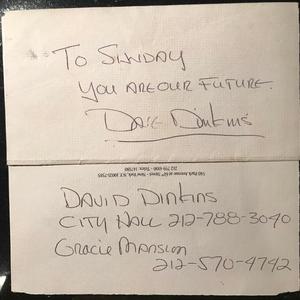 To Sunday
You are our future.
Dave Dinkins
540 Park Avenue at 61st Street · New York, N.Y. 10021-7385
212 759-4100 · Telex: 147580
David Dinkins
City Hall 212-788-3040
Gracie Mansion
212-570-4742